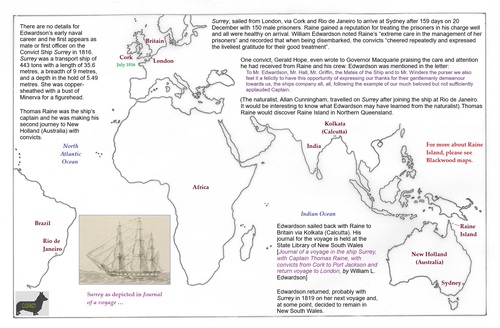 There are no details for
Edwardson's early naval
career and the first appears as
mate or first officer on the
Convict Ship Surrey in 1816.
Surrey was a transport ship of
443 tons with a length of 35.6
metres, a breadth of 9 metres,
and a depth in the hold of 5.49
metres. She was copper-
sheathed with a bust of
Minerva for a figurehead.
Thomas Raine was the ship's
captain and he was making his
second journey to New
Holland (Australia) with
convicts.
Surrey, sailed from London, via Cork and Rio de Janeiro to arrive at Sydney after 159 days on 20
December with 150 male prisoners. Raine gained a reputation for treating the prisoners in his charge well
and all were healthy on arrival. William Edwardson noted Raine's "extreme care in the management of her
prisoners" and recorded that when being disembarked, the convicts "cheered repeatedly and expressed
the liveliest gratitude for their good treatment".
One convict, Gerald Hope, even wrote to Governor Macquarie praising the care and attention
he had received from Raine and his crew. Edwardson was mentioned in the letter:
To Mr. Edwardson, Mr. Hall, Mr. Griffin, the Mates of the Ship and to Mr. Winders the purser we also
feel it a felicity to have this opportunity of expressing our thanks for their gentlemanly demeanour
towards us, the ships company all, all, following the example of our much beloved but not sufficiently
applauded Captain.
(The naturalist, Allan Cunningham, travelled on Surrey after joining the ship at Rio de Janeiro
It would be interesting to know what Edwardson may have learned from the naturalist). Thomas
Raine would discover Raine Island in Northern Queensland.
Britain
Cork
July 1816
London
Kolkata
(Calcutta)
India
For more about Raine
Island, please see
Blackwood maps.
North
Atlantic
Ocean
Africa
Indian Ocean
Brazil
Rio de
Janeiro
Raine
Island
New Holland
(Australia)
Sydney
Surrey as depicted in Journal
of a voyage …
Edwardson sailed back with Raine to
Britain via Kolkata (Calcutta). His
journal for the voyage is held at the
State Library of New South Wales
[Journal of a voyage in the ship Surrey,
with Captain Thomas Raine, with
convicts from Cork to Port Jackson and
return voyage to London, by William L.
Edwardson]
Edwardson returned, probably with
Surrey in 1819 on her next voyage and,
at some point, decided to remain in
New South Wales.